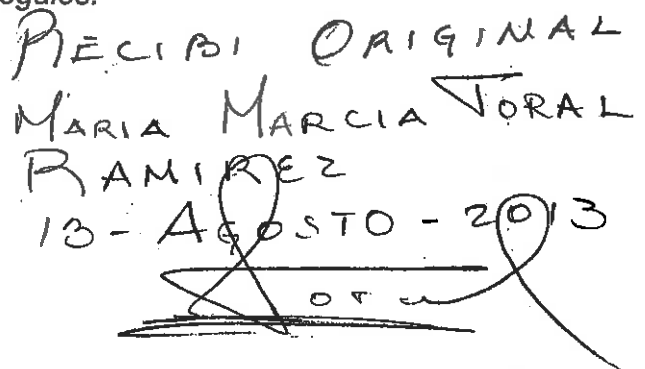 RECIBI ORIGINAL
MARIA MARCIA TORAL
RAMIREZ
13-AGOSTO-2013